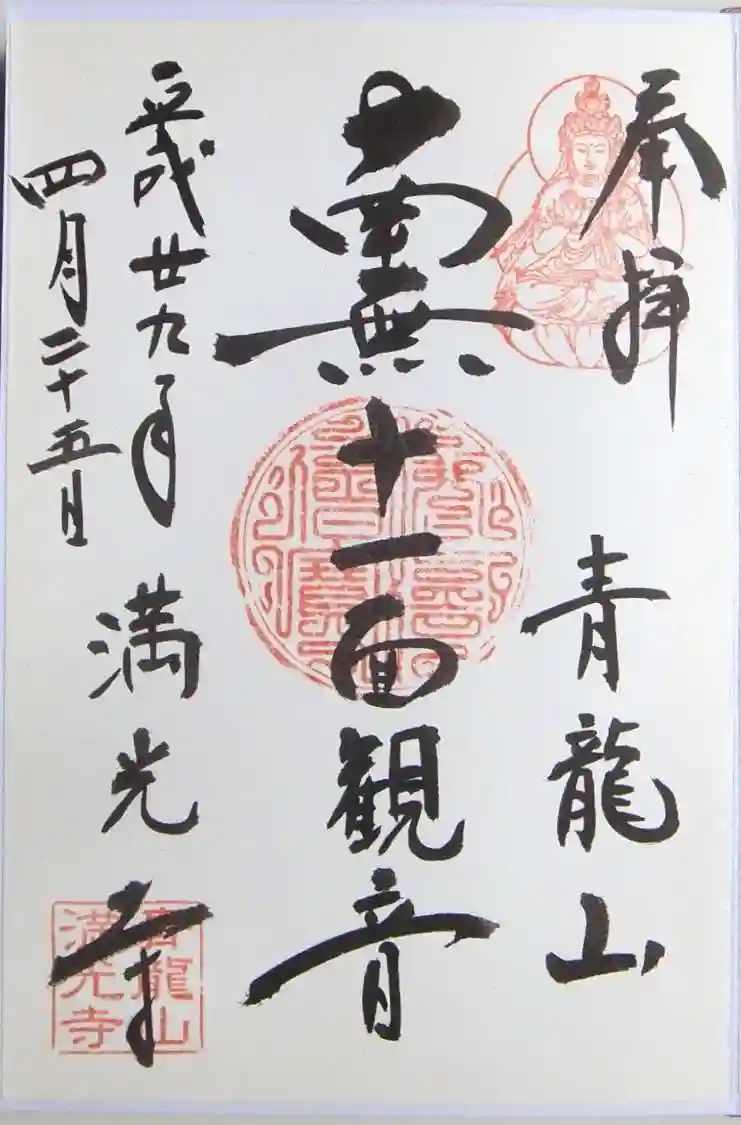 奉拝
青龍山
南無十一面観音
平成廿九年
四月二十五日
満光寺
青龍山
満光寺